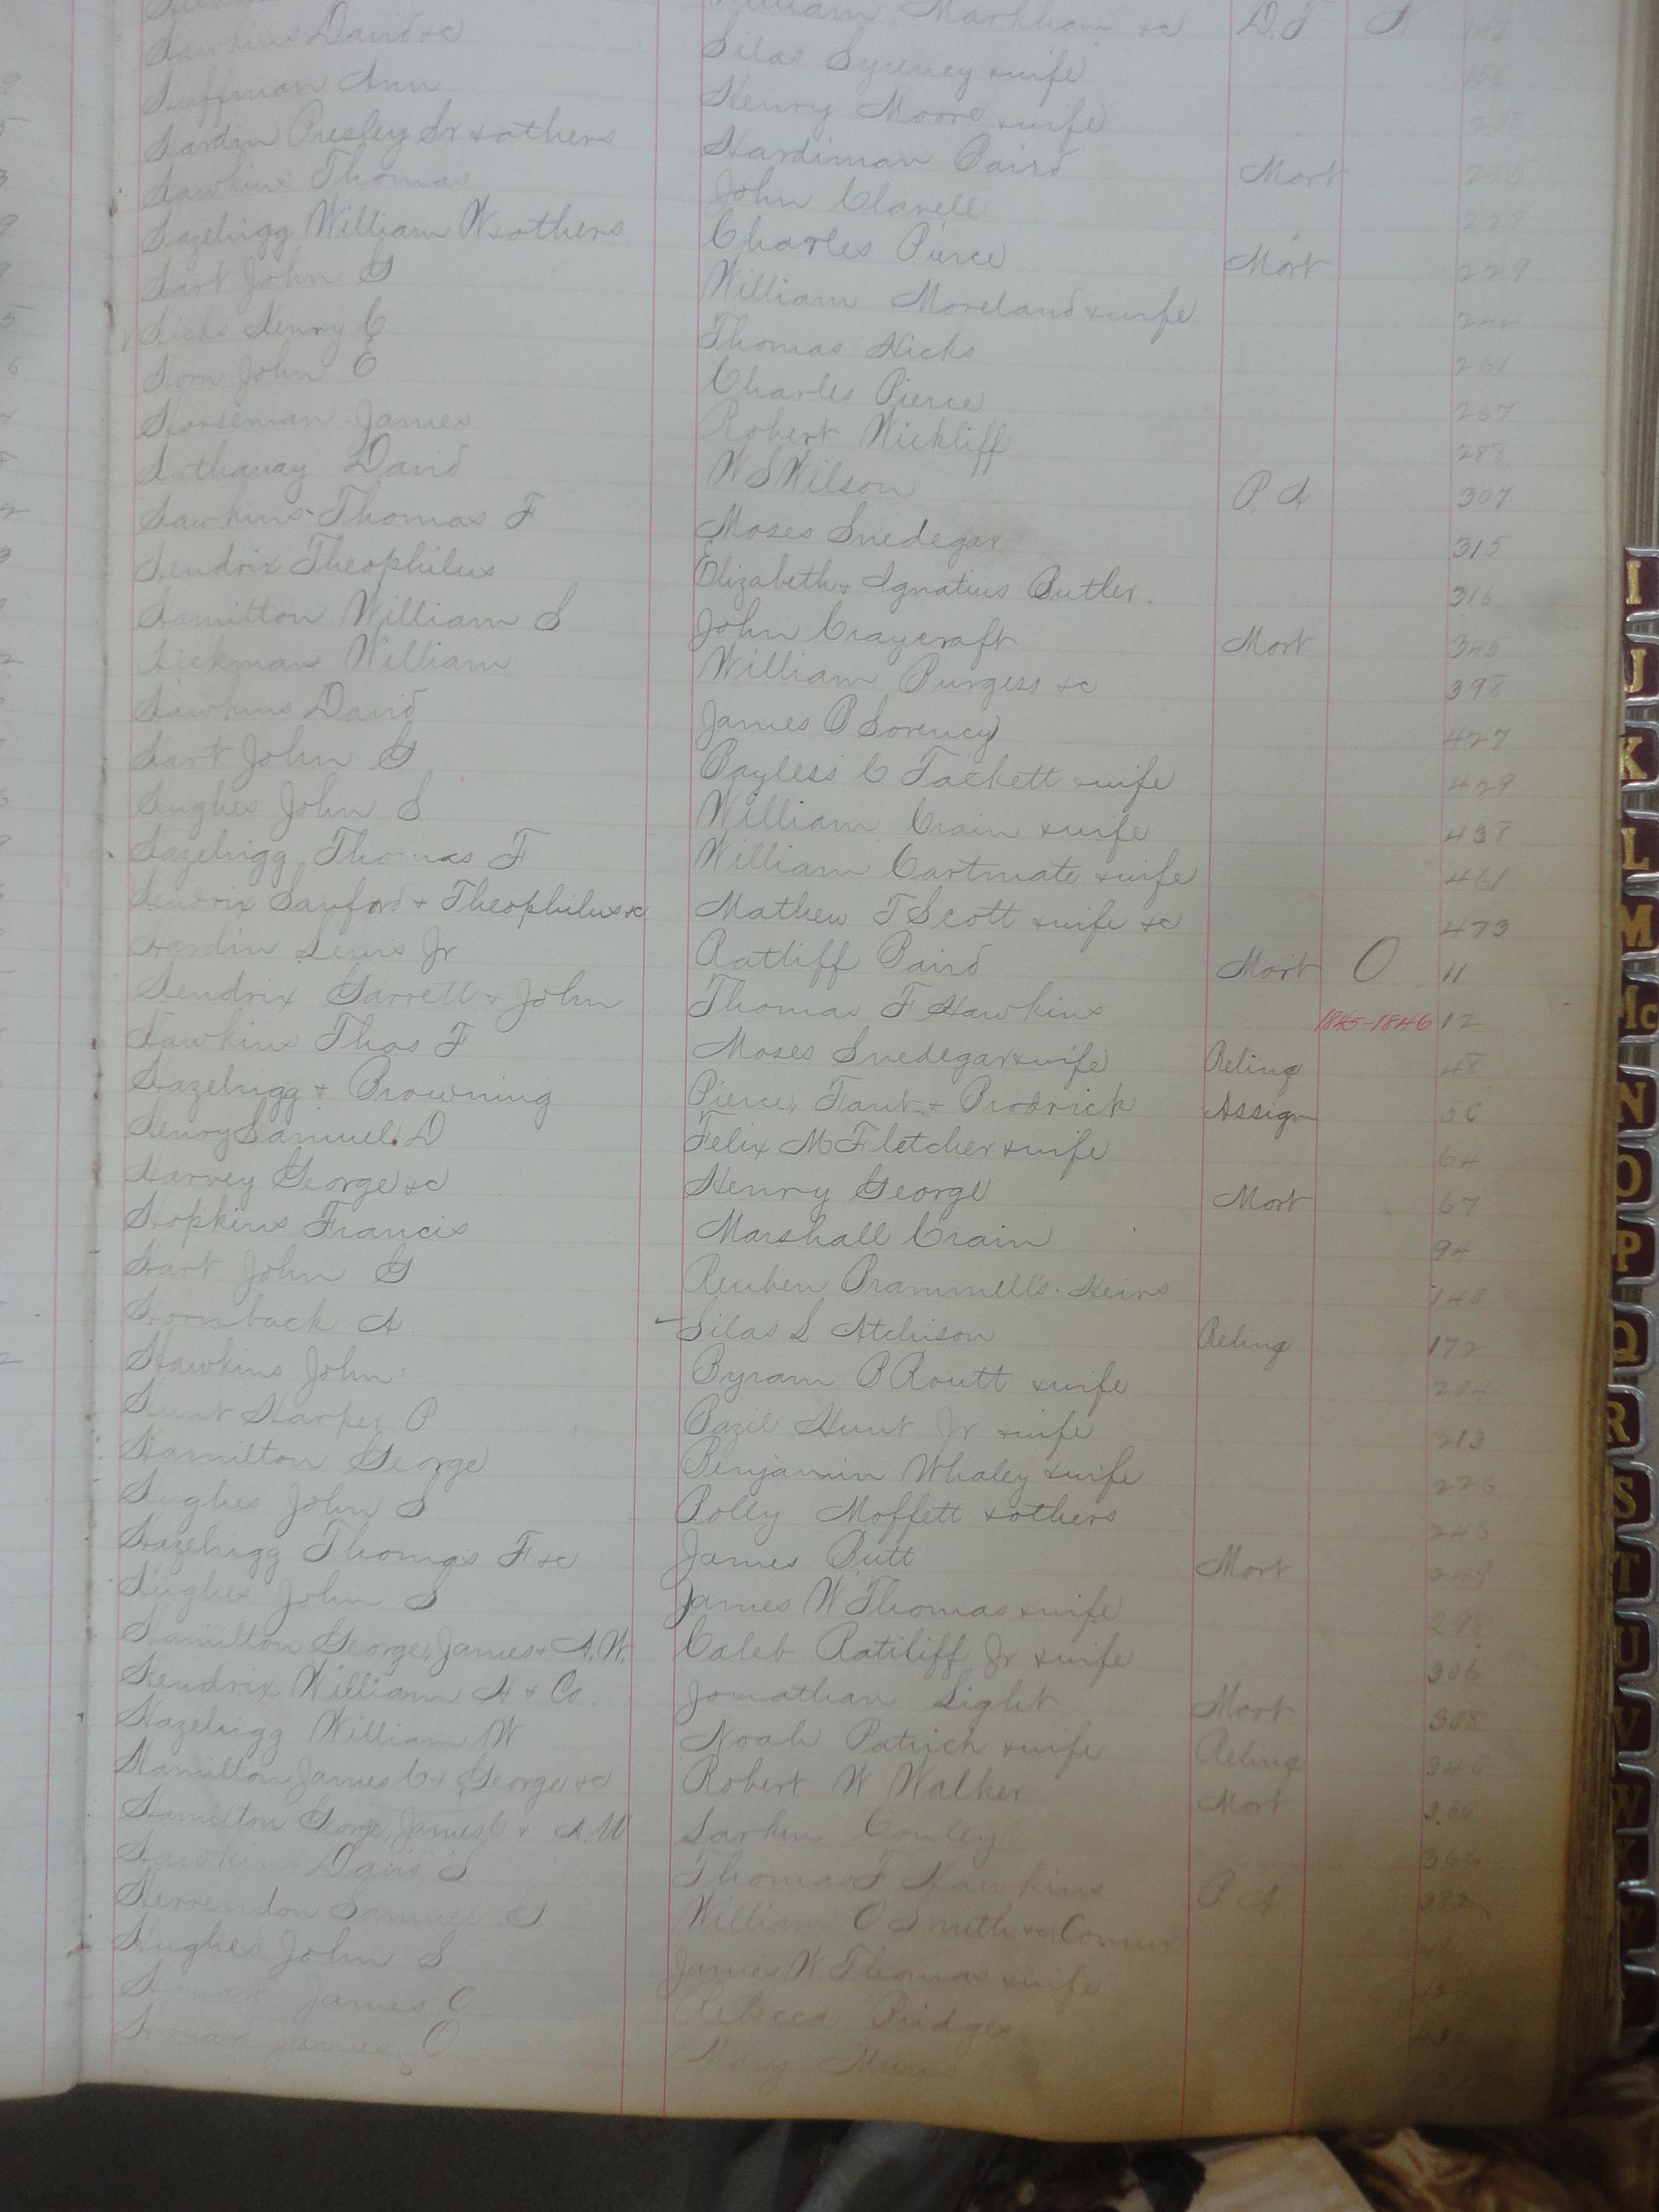 Hawkins David &c William Markham &c D.T N
Huffman Ann Silas Syuency & wife
Hardin Presley Sr & others Henry Moore & wife
Hawkins Thomas Hardiman Baird Mort
Hazelrigg William W & others John Clavell 228
Hart John G Charles Pierce Mort 229
Hicks Henry C William Moreland & wife 244
Horn John E Thomas Hicks 261
Horseman James Charles Pierce 267
Hathaway David Robert Wickliff 288
Hawkins Thomas F W S Wilson P. A 307
Hendrix Theophilus Moses Snedegar 315
Hamilton William S Elizabeth & Ignatius Butler. 316
Hickman William John Craycraft Mort 345
Hawkins David William Burgess &c 398
Hart John G James P Sorency 427
Hughes John S Bayless C Tackett & wife 429
Hazelrigg Thomas F William Crain & wife 438
Hendrix Sanford & Theophilus &c William Cartmate & wife 461
Hardin Lewis Jr Mathew T Scott & wife &c 473
Hendrix Garrett & John Ratliff Baird Mort O 11
Hawkins Thos F Thomas F Hawkins 1845-1846 12
Hazelrigg & Browning Moses Snedegar & wife Relinq 48
Henry Samuel D Pierce, Fant & Brodrick Assign 50
Harvey George &c Felix M Fletcher & wife 64
Hopkins Francis Henry George Mort 67
Hart John G Marshall Crain 94
Hornback A. Reuben Brammell's Heirs 140
Hawkins John Silas L Atchison Relinq 172
Hunt Harper P Byram P Routt & wife 204
Hamilton George Bazil Hunt Jr & wife 213
Hughes John S Benjamin Whaley & wife 226
Hazelrigg Thomas F &c Polly Moffett & others 246
Hughes John S James Butt Mort 249
Hamilton George, James & A. W. James W Thomas & wife 298
Hendrix William H & Co. Caleb Ratliff Jr & wife 306
Hazelrigg William W Jonathan Light Mort 308
Hamilton James C & George &c Noah Patrick & wife Relinq 346
Hamilton George, James C & A. W Robert W Walker Mort 360
Hawkins David S Larkin Conley 366
Herrendon Samuel G Thomas F Hawkins P A 382
Hughes John S William O Smith & Commr.
James O James W Thomas & wife
James O Rebecca Bridges
Mary
I
J
K
L
M
Mc
N
O
P
Q
R
S
T
U
V
W